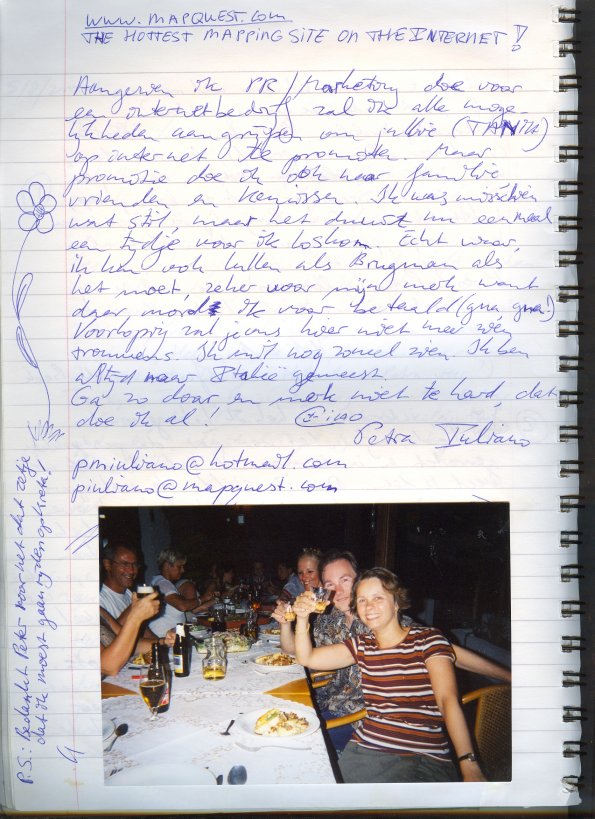 www.mapquest.com
THE HOTTEST MAPPING SITE ON THE INTERNET!
Aangezien ik PR/Marketing doe voor
een internetbedrijf zal ik alle moge-
lijkheden aangrijpen om jullie (TANIA)
op internet te promoten. Maar
promotie doe ik ook naar familie
vrienden en kennissen. Ik was misschien
wat stil, maar het duurt nu eenmaal
een tijdje voor ik loskom. Echt waar,
ik kan ook lullen als Brugman als
het moet, zeker voor mijn werk want
daar word ik voor betaald (gna, gna!)
Voorlopig zal je ons hier niet meer zien
trouwens. Ik wil nog zoveel zien. Ik ben
altijd naar Italië geweest.
Ga zo door en werk niet te hard, dat
doe ik al! Ciao
Petra Iuliano
pmiuliano@hotmail.com
piuliano@mapquest.com
P.S.: Bedankt Peter voor het dat zetje
dat ik moest gaan